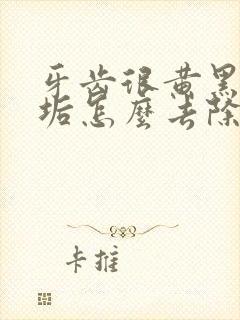 牙齿很黄黑
垢怎麼去除
卡推